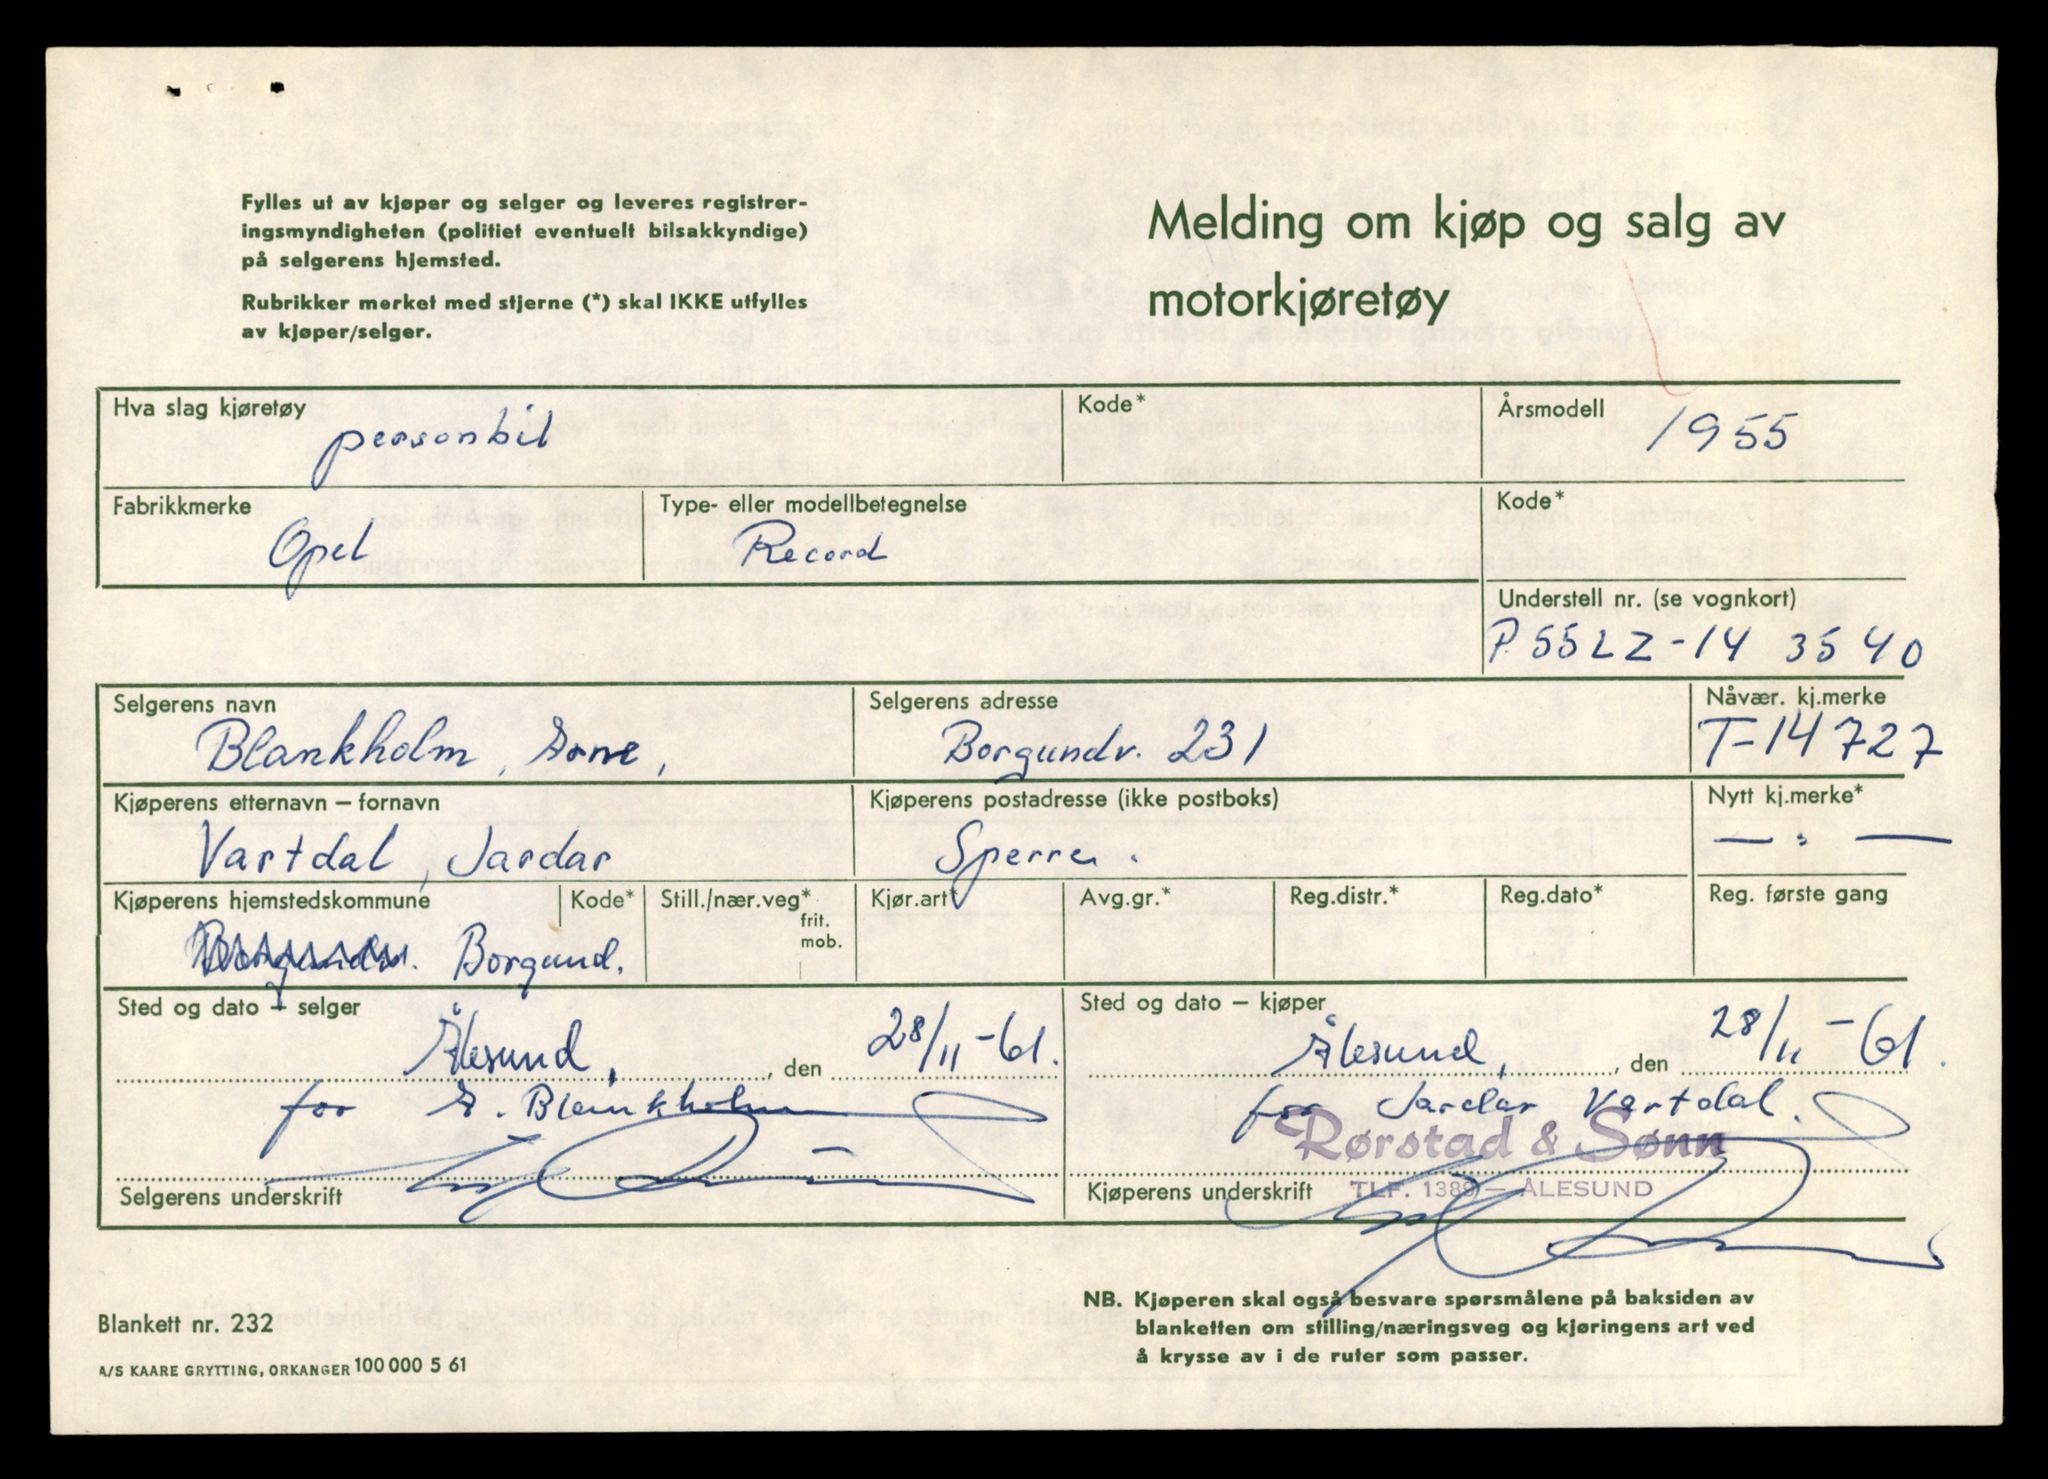 Fylles ut av kjøper og selger og leveres registrer-
ingsmyndigheten (politiet eventuelt bilsakkyndige)
på selgerens hjemsted.
Rubrikker merket med stjerne (*) skal IKKE utfylles
av kjøper/selger.
Melding om kjøp og salg av
motorkjøretøy
Hva slag kjøretøy Kode* Årsmodell
personbil 1955
Fabrikkmerke Type- eller modellbetegnelse Kode*
Opel Record
Understell nr. (se vognkort)
P.55LZ-14 3540
Selgerens navn Selgerens adresse Nåvær. kj.merke
Blankholm, Arne, Borgundv. 231 T-14727
Kjøperens etternavn – fornavn Kjøperens postadresse (ikke postboks) Nytt kj.merke*
Vartdal, Jardar Sperre. — " —
Kjøperens hjemstedskommune Kode* Still./nær.veg* Kjør.art* Avg.gr.* Reg.distr.* Reg.dato* Reg. første gang
frit.
mob.
Borgund.
Sted og dato – selger Sted og dato – kjøper
Ålesund, , den 28/11-61. Ålesund, , den 28/11-61.
for A. Blankholm for Jardar Vartdal.
Rørstad & Sønn
Selgerens underskrift Kjøperens underskrift TLF. 1389 — ÅLESUND
NB. Kjøperen skal også besvare spørsmålene på baksiden av
blanketten om stilling/næringsveg og kjøringens art ved
å krysse av i de ruter som passer.
Blankett nr. 232
A/S KAARE GRYTTING, ORKANGER 100 000 5 61